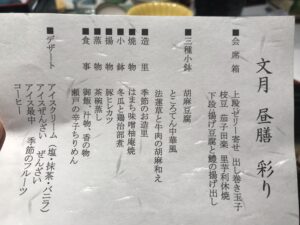 文月 昼膳 彩り
■会席箱
上段 ゼリー寄せ 出し巻き玉子
枝豆 茄子田楽 里芋利休焼
下段 揚げ豆腐と鱧の揚げ出し
■三種小鉢
胡麻豆腐
ところてん中華風
法蓮草と牛肉の胡麻和え
■造里
季節のお造里
■焼物
はまち味噌柚庵焼
■小鉢
冬瓜と鶏治部煮
■揚物
豚ヒレカツ
■蒸物
茶碗蒸し
■食事
御飯、汁物、香の物
瀬戸の辛子ちりめん
■デザート
アイスクリーム(塩・抹茶・バニラ)
アイスぜんざい ぜんざい
アイス最中 季節のフルーツ
コーヒー